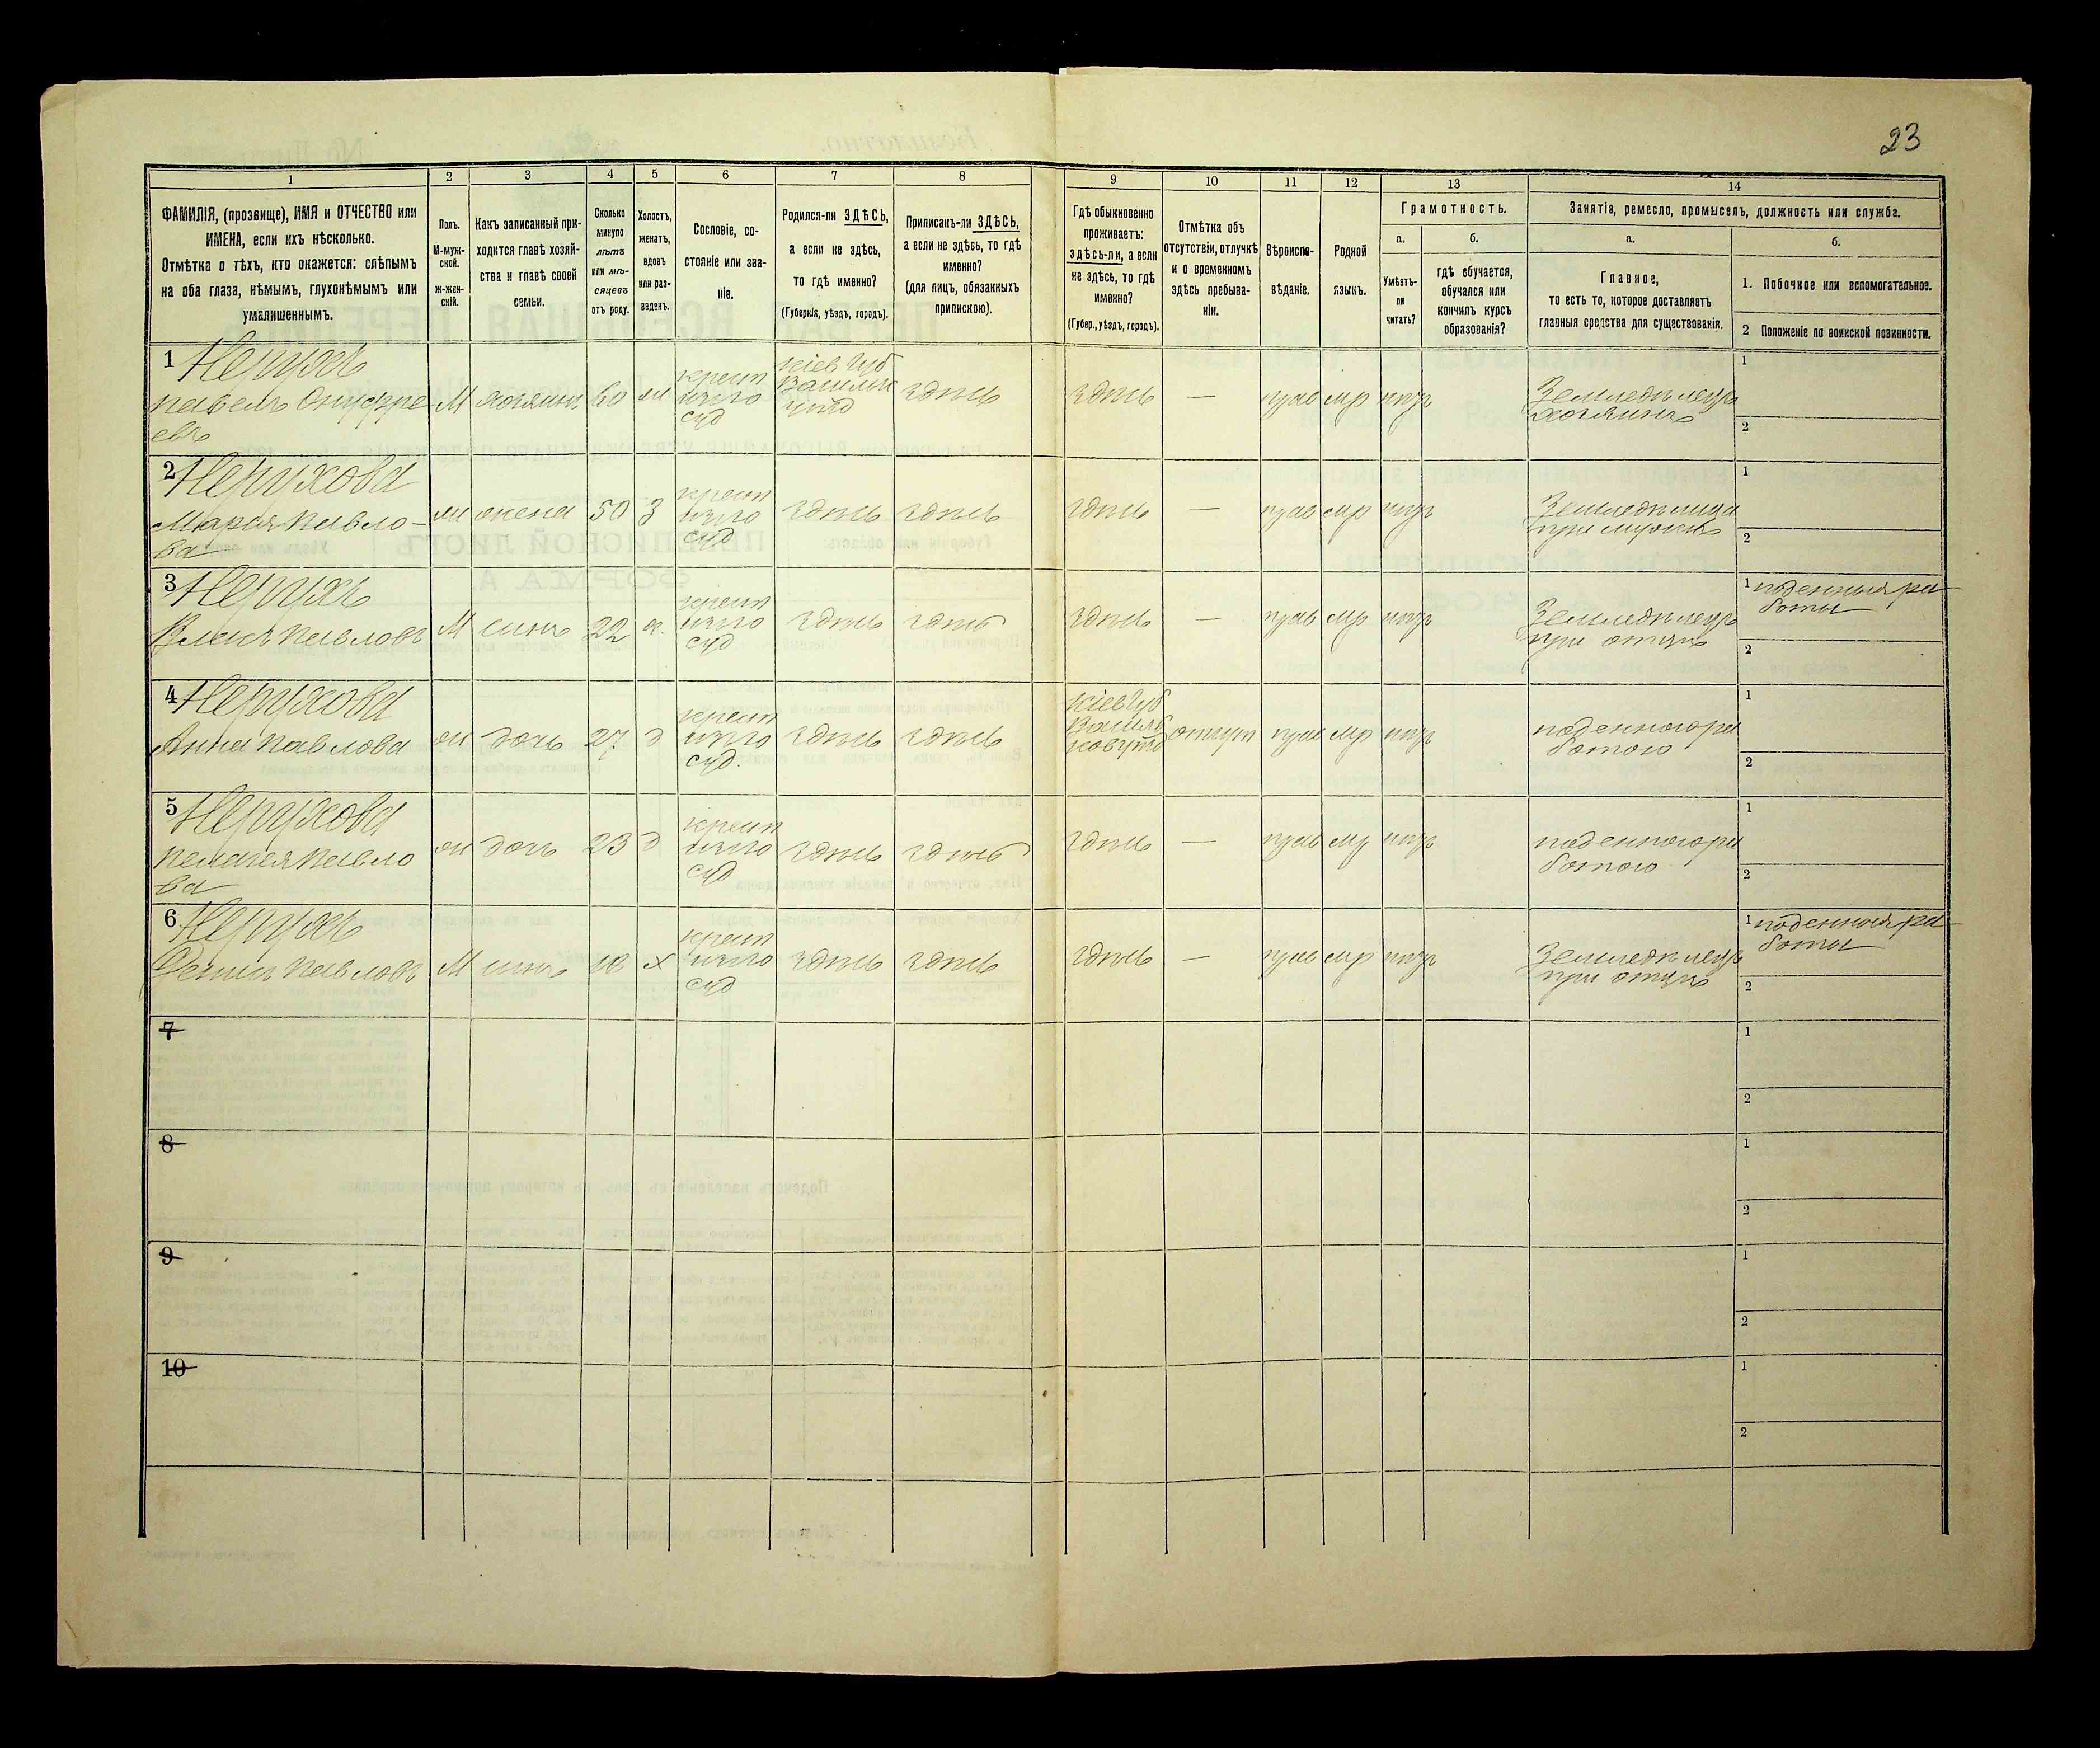 23
1
2
3
4
5
6
7
8
9
10
11
12
13
14
ФАМИЛІЯ, (прозвище), ИМЯ и ОТЧЕСТВО или
ИМЕНА, если ихъ нѣсколько.
Отмѣтка о тѣхъ, кто окажется: слѣпымъ
на оба глаза, нѣмымъ, глухонѣмымъ или
умалишеннымъ.
Полъ.
М-муж-
ской.
ж-жен-
скій.
Какъ записанный при-
ходится главѣ хозяй-
ства и главѣ своей
семьи.
Сколько
минуло
лѣтъ
или мѣ-
сяцевъ
отъ роду.
Холостъ,
женатъ,
вдовъ
или раз-
веденъ.
Сословіе, со-
стояніе или зва-
ніе.
Родился-ли ЗДѢСЬ,
а если не здѣсь,
то гдѣ именно?
(Губернія, уѣздъ, городъ).
Приписанъ-ли ЗДѢСЬ,
а если не здѣсь, то гдѣ
именно?
(для лицъ, обязанныхъ
припискою).
Гдѣ обыкновенно
проживаетъ:
здѣсь-ли, а если
не здѣсь, то гдѣ
именно?
(Губер., уѣздъ, городъ).
Отмѣтка объ
отсутствіи, отлучкѣ
и о временномъ
здѣсь пребыва-
ніи.
Вѣроиспо-
вѣданіе.
Родной
языкъ.
Грамотность.
а.
Умѣетъ-
ли
читать?
б.
гдѣ обучается,
обучался или
кончилъ курсъ
образованія?
Занятія, ремесло, промыселъ, должность или служба.
а.
Главное,
то есть то, которое доставляетъ
главныя средства для существованія.
б.
1. Побочное или вспомогательное.
2 Положеніе по воинской повинности.
1 Нерухъ
Павелъ Онуфрі-
евъ
М
хозяинъ
60
крест
Кіев Губ
Васильк
уѣзд
здѣсь
здѣсь
—
прав
мр
Земледѣлецъ
хозяинъ
1
2
2 Нерухова
Марія Павло-
ва
жена
50
З
крест
здѣсь
здѣсь
здѣсь
—
прав
мр
при мужѣ
1
2
3 Нерухъ
Павловъ
М
сынъ
22
крест
здѣсь
здѣсь
здѣсь
—
прав
мр
Земледѣлецъ
при отцѣ
1 поденныя ра-
боты
2
4 Нерухова
Анна Павлова
дочь
27
д
крест
здѣсь
здѣсь
Кіев Губ
прав
мр
поденного ра
ботою
1
2
5 Нерухова
Пелагея Павло
ва
дочь
23
д
крест
здѣсь
здѣсь
здѣсь
—
прав
мр
поденного ра
ботою
1
2
6 Нерухъ
Павловъ
М
сынъ
18
х
крест
здѣсь
здѣсь
здѣсь
—
прав
мр
Земледѣлецъ
при отцѣ
1 поденныя ра-
боты
2
7
1
2
8
1
2
9
1
2
10
1
2